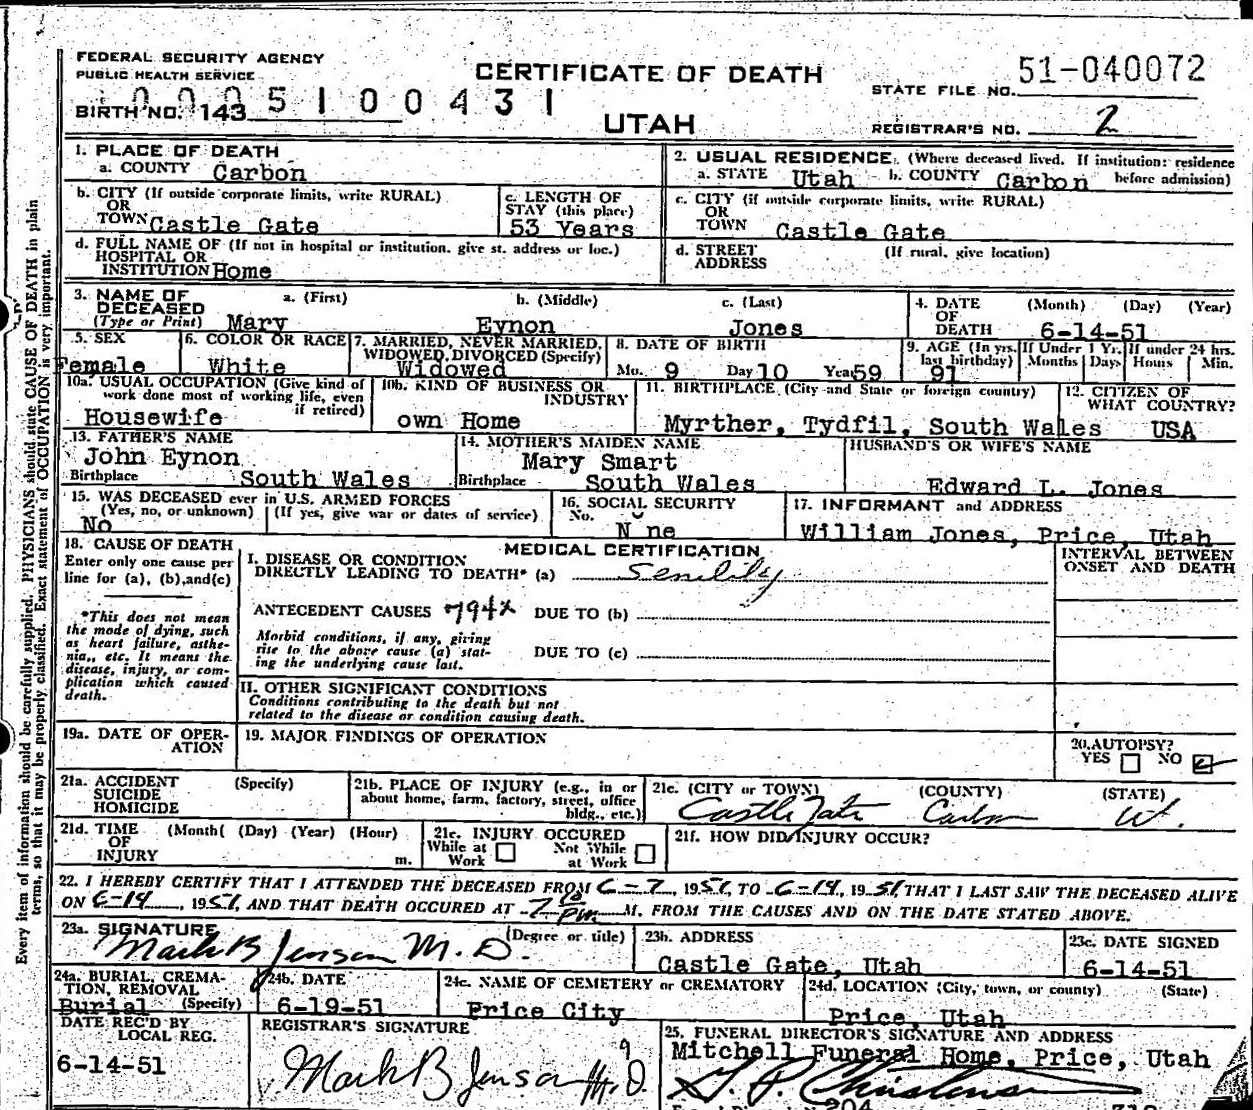 FEDERAL SECURITY AGENCY
PUBLIC HEALTH SERVICE
CERTIFICATE OF DEATH
UTAH
STATE FILE NO. 51-040072
BIRTH NO. 143
5 1 0 0 4 3 1
REGISTRAR'S NO. 2
1. PLACE OF DEATH
a. COUNTY Carbon
2. USUAL RESIDENCE. (Where deceased lived. If institution: residence before admission)
a. STATE Utah b. COUNTY Carbon
b. CITY (If outside corporate limits, write RURAL)
OR
TOWN Castle Gate
c. LENGTH OF
STAY (this place)
53 Years
c. CITY (if outside corporate limits, write RURAL)
OR
TOWN Castle Gate
d. FULL NAME OF (If not in hospital or institution. give st. address or loc.)
HOSPITAL OR
INSTITUTION Home
d. STREET (If rural, give location)
ADDRESS
3. NAME OF a. (First) b. (Middle) c. (Last)
DECEASED
(Type or Print) Mary Eynon Jones
4. DATE (Month) (Day) (Year)
OF
DEATH 6-14-51
5. SEX
Female
6. COLOR OR RACE
White
7. MARRIED, NEVER MARRIED,
WIDOWED, DIVORCED (Specify)
Widowed
8. DATE OF BIRTH
Mo. 9 Day 10 Year 59
9. AGE (In yrs. If Under 1 Yr. If under 24 hrs.
last birthday) Months Days Hours Min.
91
10a. USUAL OCCUPATION (Give kind of
work done most of working life, even
if retired)
Housewife
10b. KIND OF BUSINESS OR
INDUSTRY
own Home
11. BIRTHPLACE (City and State or foreign country)
Myrther, Tydfil, South Wales
12. CITIZEN OF
WHAT COUNTRY?
USA
13. FATHER'S NAME
John Eynon
Birthplace South Wales
14. MOTHER'S MAIDEN NAME
Mary Smart
Birthplace South Wales
HUSBAND'S OR WIFE'S NAME
Edward L. Jones
15. WAS DECEASED ever in U.S. ARMED FORCES
(Yes, no, or unknown) (If yes, give war or dates of service)
No
16. SOCIAL SECURITY
No.
N ne
17. INFORMANT and ADDRESS
William Jones, Price, Utah
18. CAUSE OF DEATH
Enter only one cause per
line for (a), (b),and(c)
*This does not mean
the mode of dying, such
as heart failure, asthe-
nia,, etc. It means the
disease, injury, or com-
plication which caused
death.
MEDICAL CERTIFICATION
INTERVAL BETWEEN
ONSET AND DEATH
I. DISEASE OR CONDITION
DIRECTLY LEADING TO DEATH* (a) Senility
ANTECEDENT CAUSES 794X DUE TO (b)
Morbid conditions, if any, giving
rise to the above cause (a) stat-
ing the underlying cause last.
DUE TO (c)
II. OTHER SIGNIFICANT CONDITIONS
Conditions contributing to the death but not
related to the disease or condition causing death.
19a. DATE OF OPER-
ATION
19. MAJOR FINDINGS OF OPERATION
20. AUTOPSY?
YES NO
21a. ACCIDENT (Specify)
SUICIDE
HOMICIDE
21b. PLACE OF INJURY (e.g., in or
about home, farm, factory, street, office
bldg., etc.)
21c. (CITY or TOWN) (COUNTY) (STATE)
Castle Gate Carbon Ut.
21d. TIME (Month( (Day) (Year) (Hour)
OF
INJURY m.
21e. INJURY OCCURED
While at Not While
Work at Work
21f. HOW DID INJURY OCCUR?
22. I HEREBY CERTIFY THAT I ATTENDED THE DECEASED FROM 6-7, 1951, TO 6-14, 1951 THAT I LAST SAW THE DECEASED ALIVE
ON 6-14, 1951, AND THAT DEATH OCCURED AT 7 10 PM M. FROM THE CAUSES AND ON THE DATE STATED ABOVE.
23a. SIGNATURE (Degree or title)
Mark B Jensen M. D.
23b. ADDRESS
Castle Gate, Utah
23c. DATE SIGNED
6-14-51
24a. BURIAL, CREMA-
TION, REMOVAL
Burial (Specify)
24b. DATE
6-19-51
24c. NAME OF CEMETERY or CREMATORY
Price City
24d. LOCATION (City, town, or county) (State)
Price, Utah
DATE REC'D BY
LOCAL REG.
6-14-51
REGISTRAR'S SIGNATURE
Mark B Jensen M. D.
9
25. FUNERAL DIRECTOR'S SIGNATURE AND ADDRESS
Mitchell Funeral Home, Price, Utah
204
Every item of information should be carefully supplied. PHYSICIANS should state CAUSE OF DEATH in plain
terms, so that it may be properly classified. Exact statement of OCCUPATION is very important.